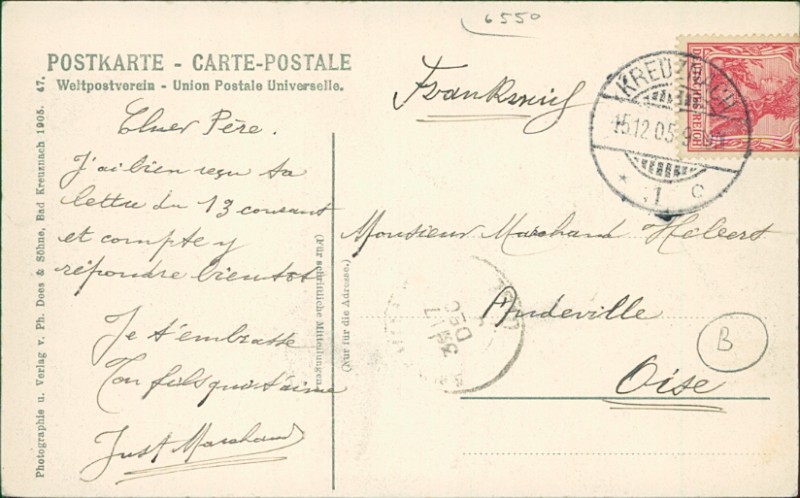 6550
POSTKARTE - CARTE-POSTALE
Weltpostverein - Union Postale Universelle.
Cher Père.
J'ai bien reçu ta
lettre du 13 courant
et compte y
répondre bientôt
Je t'embrasse
Ton fils qui t'aime
Just Marchand
Photographie u. Verlag v. Ph. Does & Söhne, Bad Kreuznach 1905. 47.
(Für schriftliche Mitteilungen.)
(Nur für die Adresse.)
Frankreich
KREUZNACH
15.12.05
* 1 c
DEUTSCHES REICH
Monsieur Marchand
Andeville
Oise
B
17
DEC